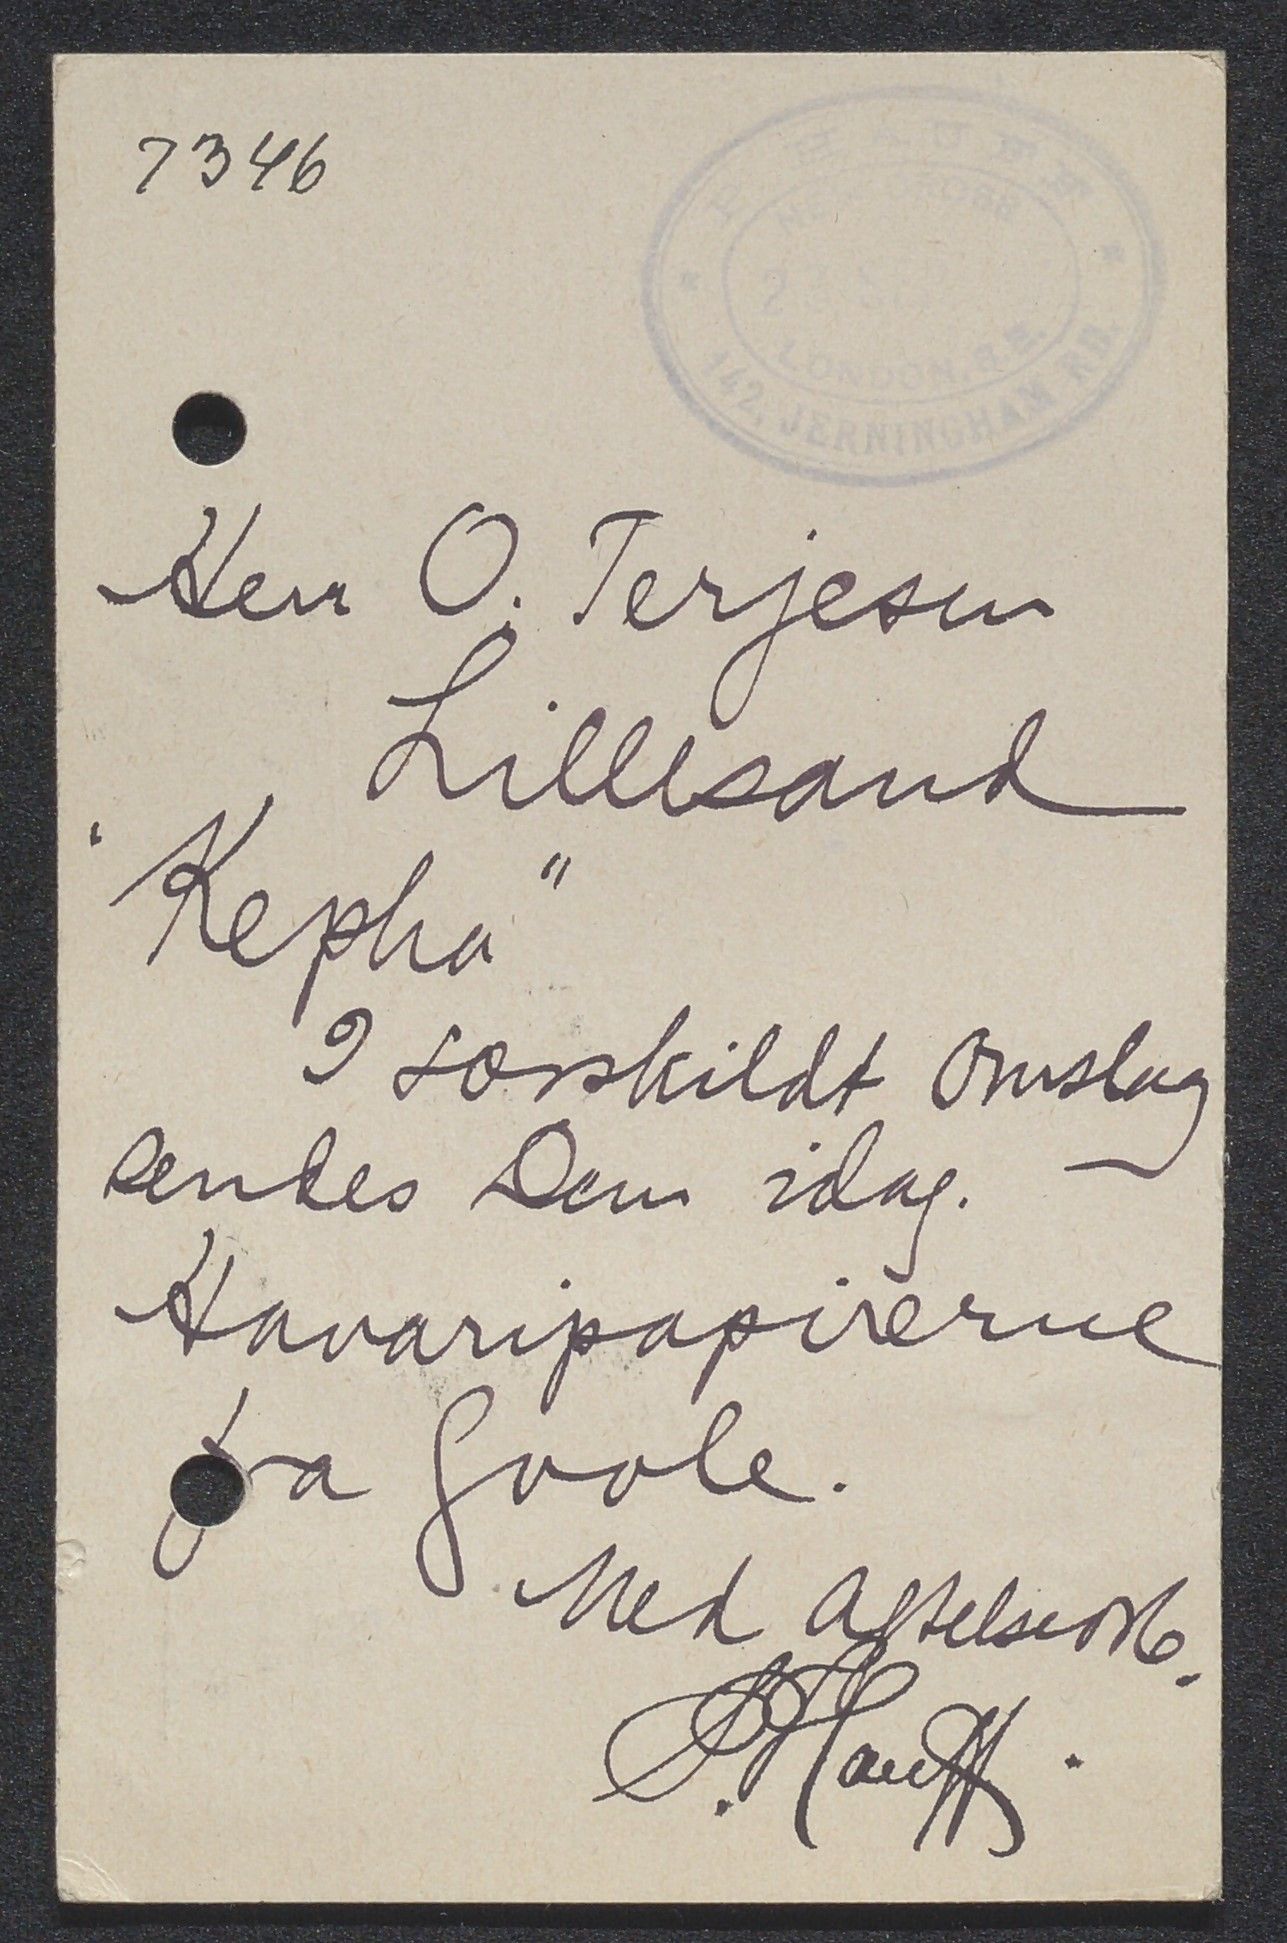 7346
HAUFF
NEW CROSS
23 SEP
LONDON, S.E.
142, JERNINGHAM RD.
Herr O. Terjesen
Lillesand
"Kepha"
I særskildt Omslag
sendes Dem idag. —
Havaripapirerne
fra Goole.
Med
Hauff.